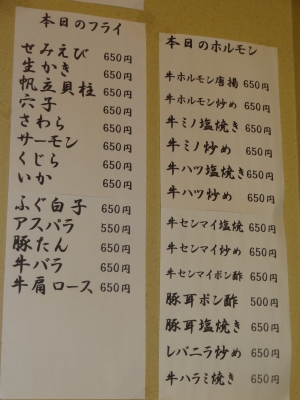 本日のフライ
せみえび 650円
生かき 650円
帆立貝柱 650円
穴子 650円
さわら 650円
サーモン 650円
くじら 650円
いか 650円
ふぐ白子 650円
アスパラ 550円
豚たん 650円
牛バラ 650円
牛肩ロース 650円
本日のホルモン
牛ホルモン唐揚 650円
牛ホルモン炒め 650円
牛ミノ塩焼き 650円
牛ミノ炒め 650円
牛ハツ塩焼き 650円
牛ハツ炒め 650円
牛センマイ塩焼 650円
牛センマイ炒め 650円
牛センマイポン酢 650円
豚耳ポン酢 500円
豚耳塩焼き 650円
レバニラ炒め 650円
牛ハラミ焼き 650円